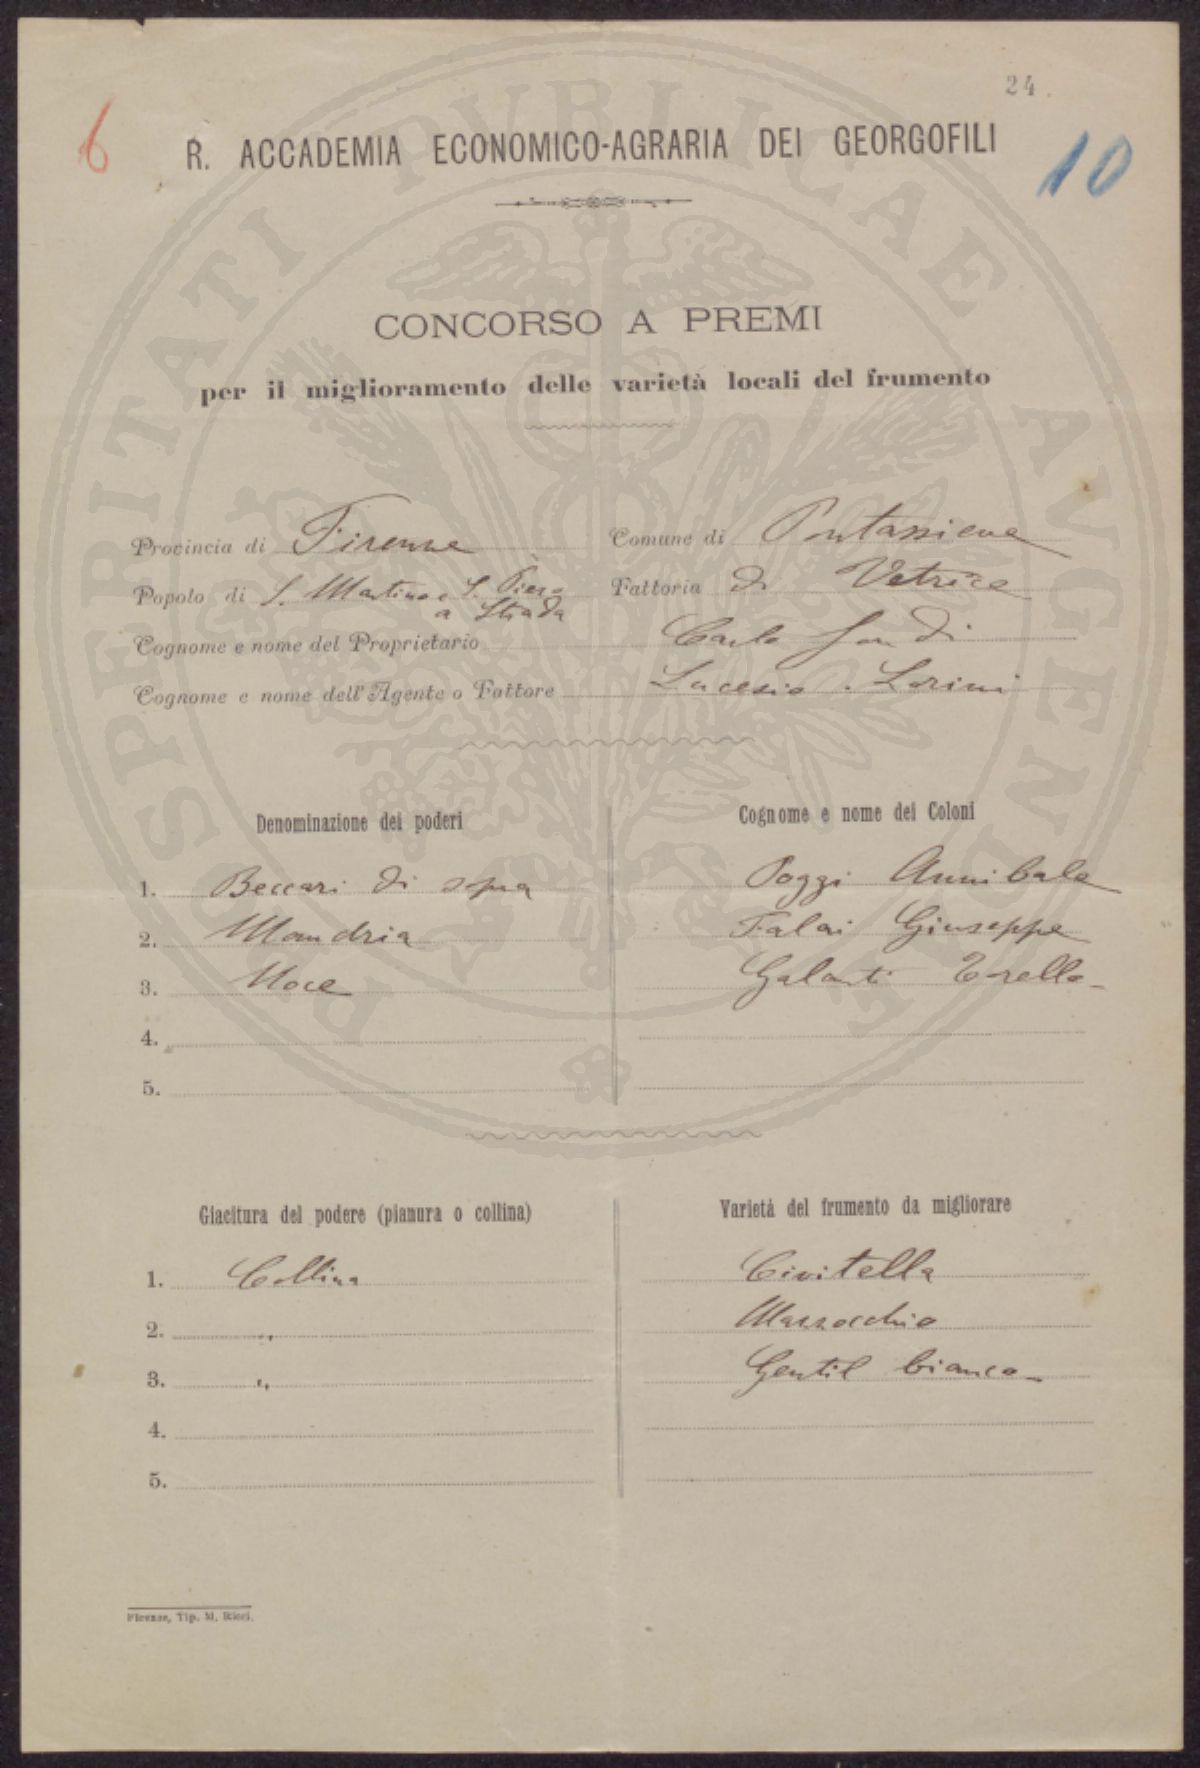 24
6
10
R. ACCADEMIA ECONOMICO-AGRARIA DEI GEORGOFILI
CONCORSO A PREMI
per il miglioramento delle varietà locali del frumento
Provincia di Firenze Comune di Pontassieve
Popolo di S. Martino e S. Piero a Strada Fattoria di Vetrice
Cognome e nome del Proprietario Carlo Gondi
Cognome e nome dell'Agente o Fattore Lucesio Lorini
Denominazione dei poderi Cognome e nome dei Coloni
1. Beccari di sopra Poggi Annibale
2. Mandria Falai Giuseppe
3. Noce Galanti Torello
4.
5.
Giacitura del podere (pianura o collina) Varietà del frumento da migliorare
1. Collina Civitella
2. " Mazzocchio
3. " Gentil bianco
4.
5.
Firenze, Tip. M. Ricci.
PROSPERITATI PVBLICAE AVGENDAE